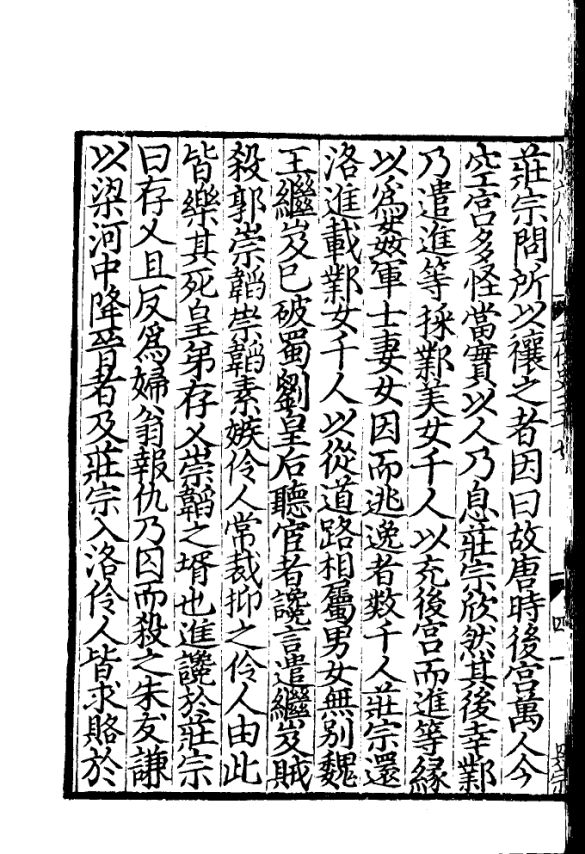 莊宗問所以禳之者因曰故唐時後宮萬人今
空宮多怪當實以人乃息莊宗欣然其後幸鄴
乃遣進等採鄴美女千人以充後宮而進等緣
以為姦軍士妻女因而逃逸者數千人莊宗還
洛進載鄴女千人以從道路相屬男女無別魏
王繼岌已破蜀劉皇后聽宦者讒言遣繼岌賊
殺郭崇韜崇韜素嫉伶人常裁抑之伶人由此
皆樂其死皇弟存乂崇韜之壻也進讒於莊宗
曰存乂且反為婦翁報仇乃囚而殺之朱友謙
以梁河中降晉者及莊宗入洛伶人皆求賂於